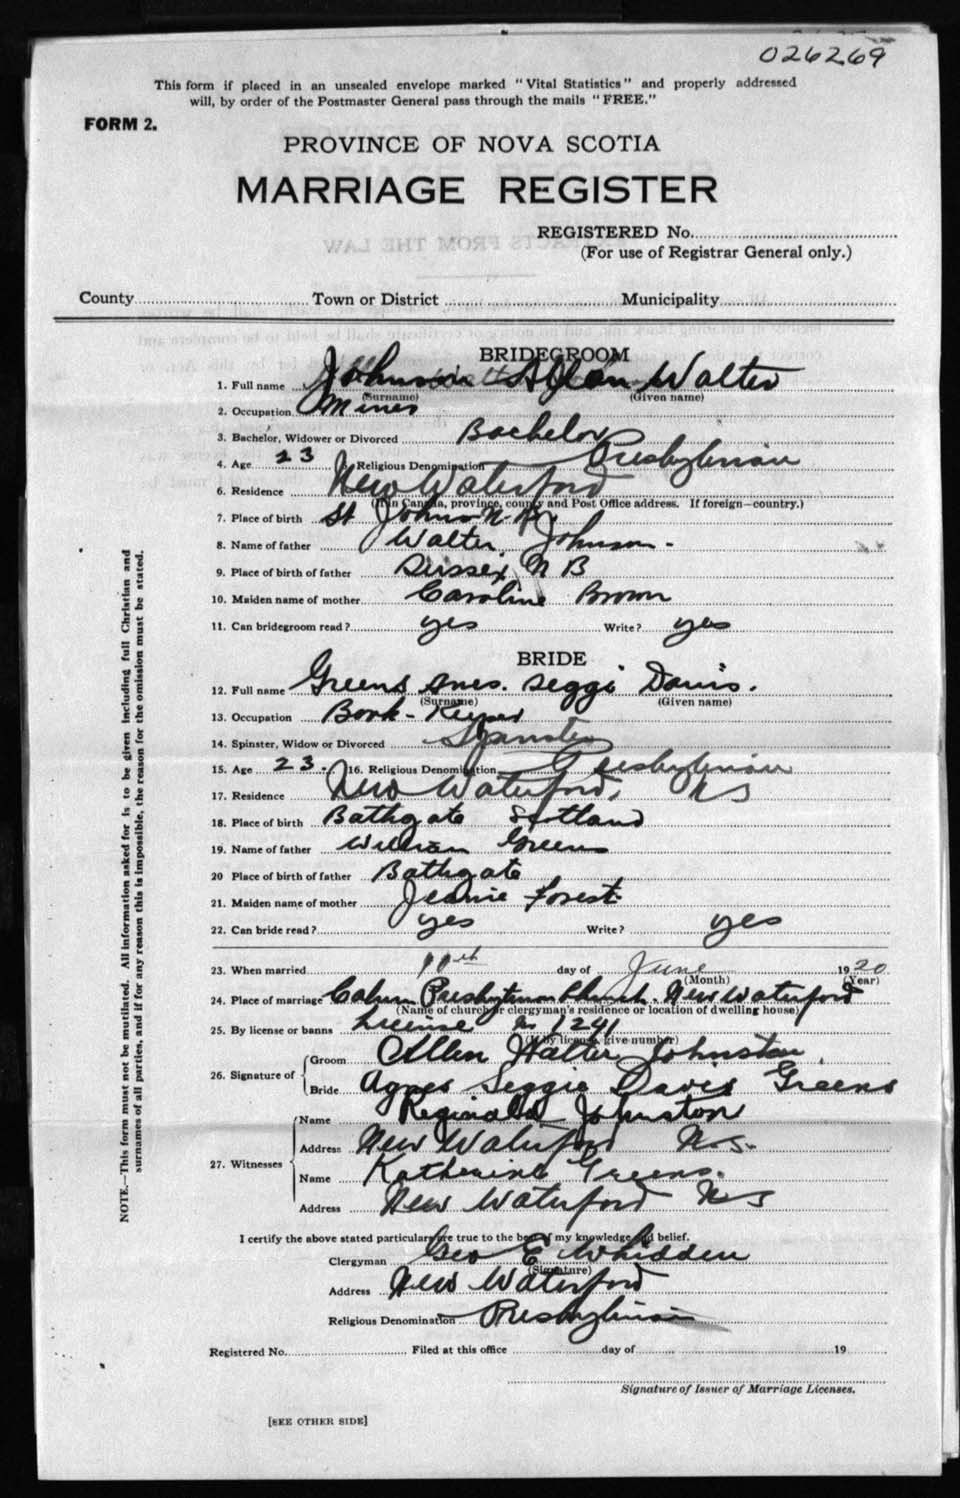 026269
This form if placed in an unsealed envelope marked "Vital Statistics" and properly addressed
will, by order of the Postmaster General pass through the mails "FREE."
FORM 2.
PROVINCE OF NOVA SCOTIA
MARRIAGE REGISTER
REGISTERED No.
(For use of Registrar General only.)
County Town or District Municipality
BRIDEGROOM
1. Full name Johnson Allan Walter
(Surname) (Given name)
2. Occupation Miner
3. Bachelor, Widower or Divorced Bachelor
4. Age 23 5. Religious Denomination Presbyterian
6. Residence New Waterford
(If in Canada, province, county and Post Office address. If foreign—country.)
7. Place of birth St Johns N.B.
8. Name of father Walter Johnson.
9. Place of birth of father Sussex N B
10. Maiden name of mother Caroline Brown
11. Can bridegroom read? yes Write? yes
BRIDE
12. Full name Greens Agnes. Seggi Davis.
(Surname) (Given name)
13. Occupation Book-Keeper
14. Spinster, Widow or Divorced Spinster
15. Age 23. 16. Religious Denomination Presbyterian
17. Residence New Waterford, NS
18. Place of birth Bathgate Scotland
19. Name of father William Greens
20 Place of birth of father Bathgate
21. Maiden name of mother Jeanie Forest
22. Can bride read? yes Write? yes
23. When married day of June 1920
(Month) (Year)
24. Place of marriage Presbyterian Church. New Waterford
(Name of church or clergyman's residence or location of dwelling house)
25. By license or banns License 1241
(If by license, give number)
26. Signature of Groom Allen Walter Johnston
Bride Agnes Seggie Davis Greens
27. Witnesses Name Reginald Johnston
Address New Waterford N.S.
Name Katherine Greens.
Address New Waterford NS
I certify the above stated particulars are true to the best of my knowledge and belief.
Clergyman Geo E Whidden
(Signature)
Address New Waterford
Religious Denomination Presbyterian
Registered No. Filed at this office day of 19
Signature of Issuer of Marriage Licenses.
[SEE OTHER SIDE]
NOTE.—This form must not be mutilated. All information asked for is to be given including full Christian and
surnames of all parties, and if for any reason this is impossible, the reason for the omission must be stated.